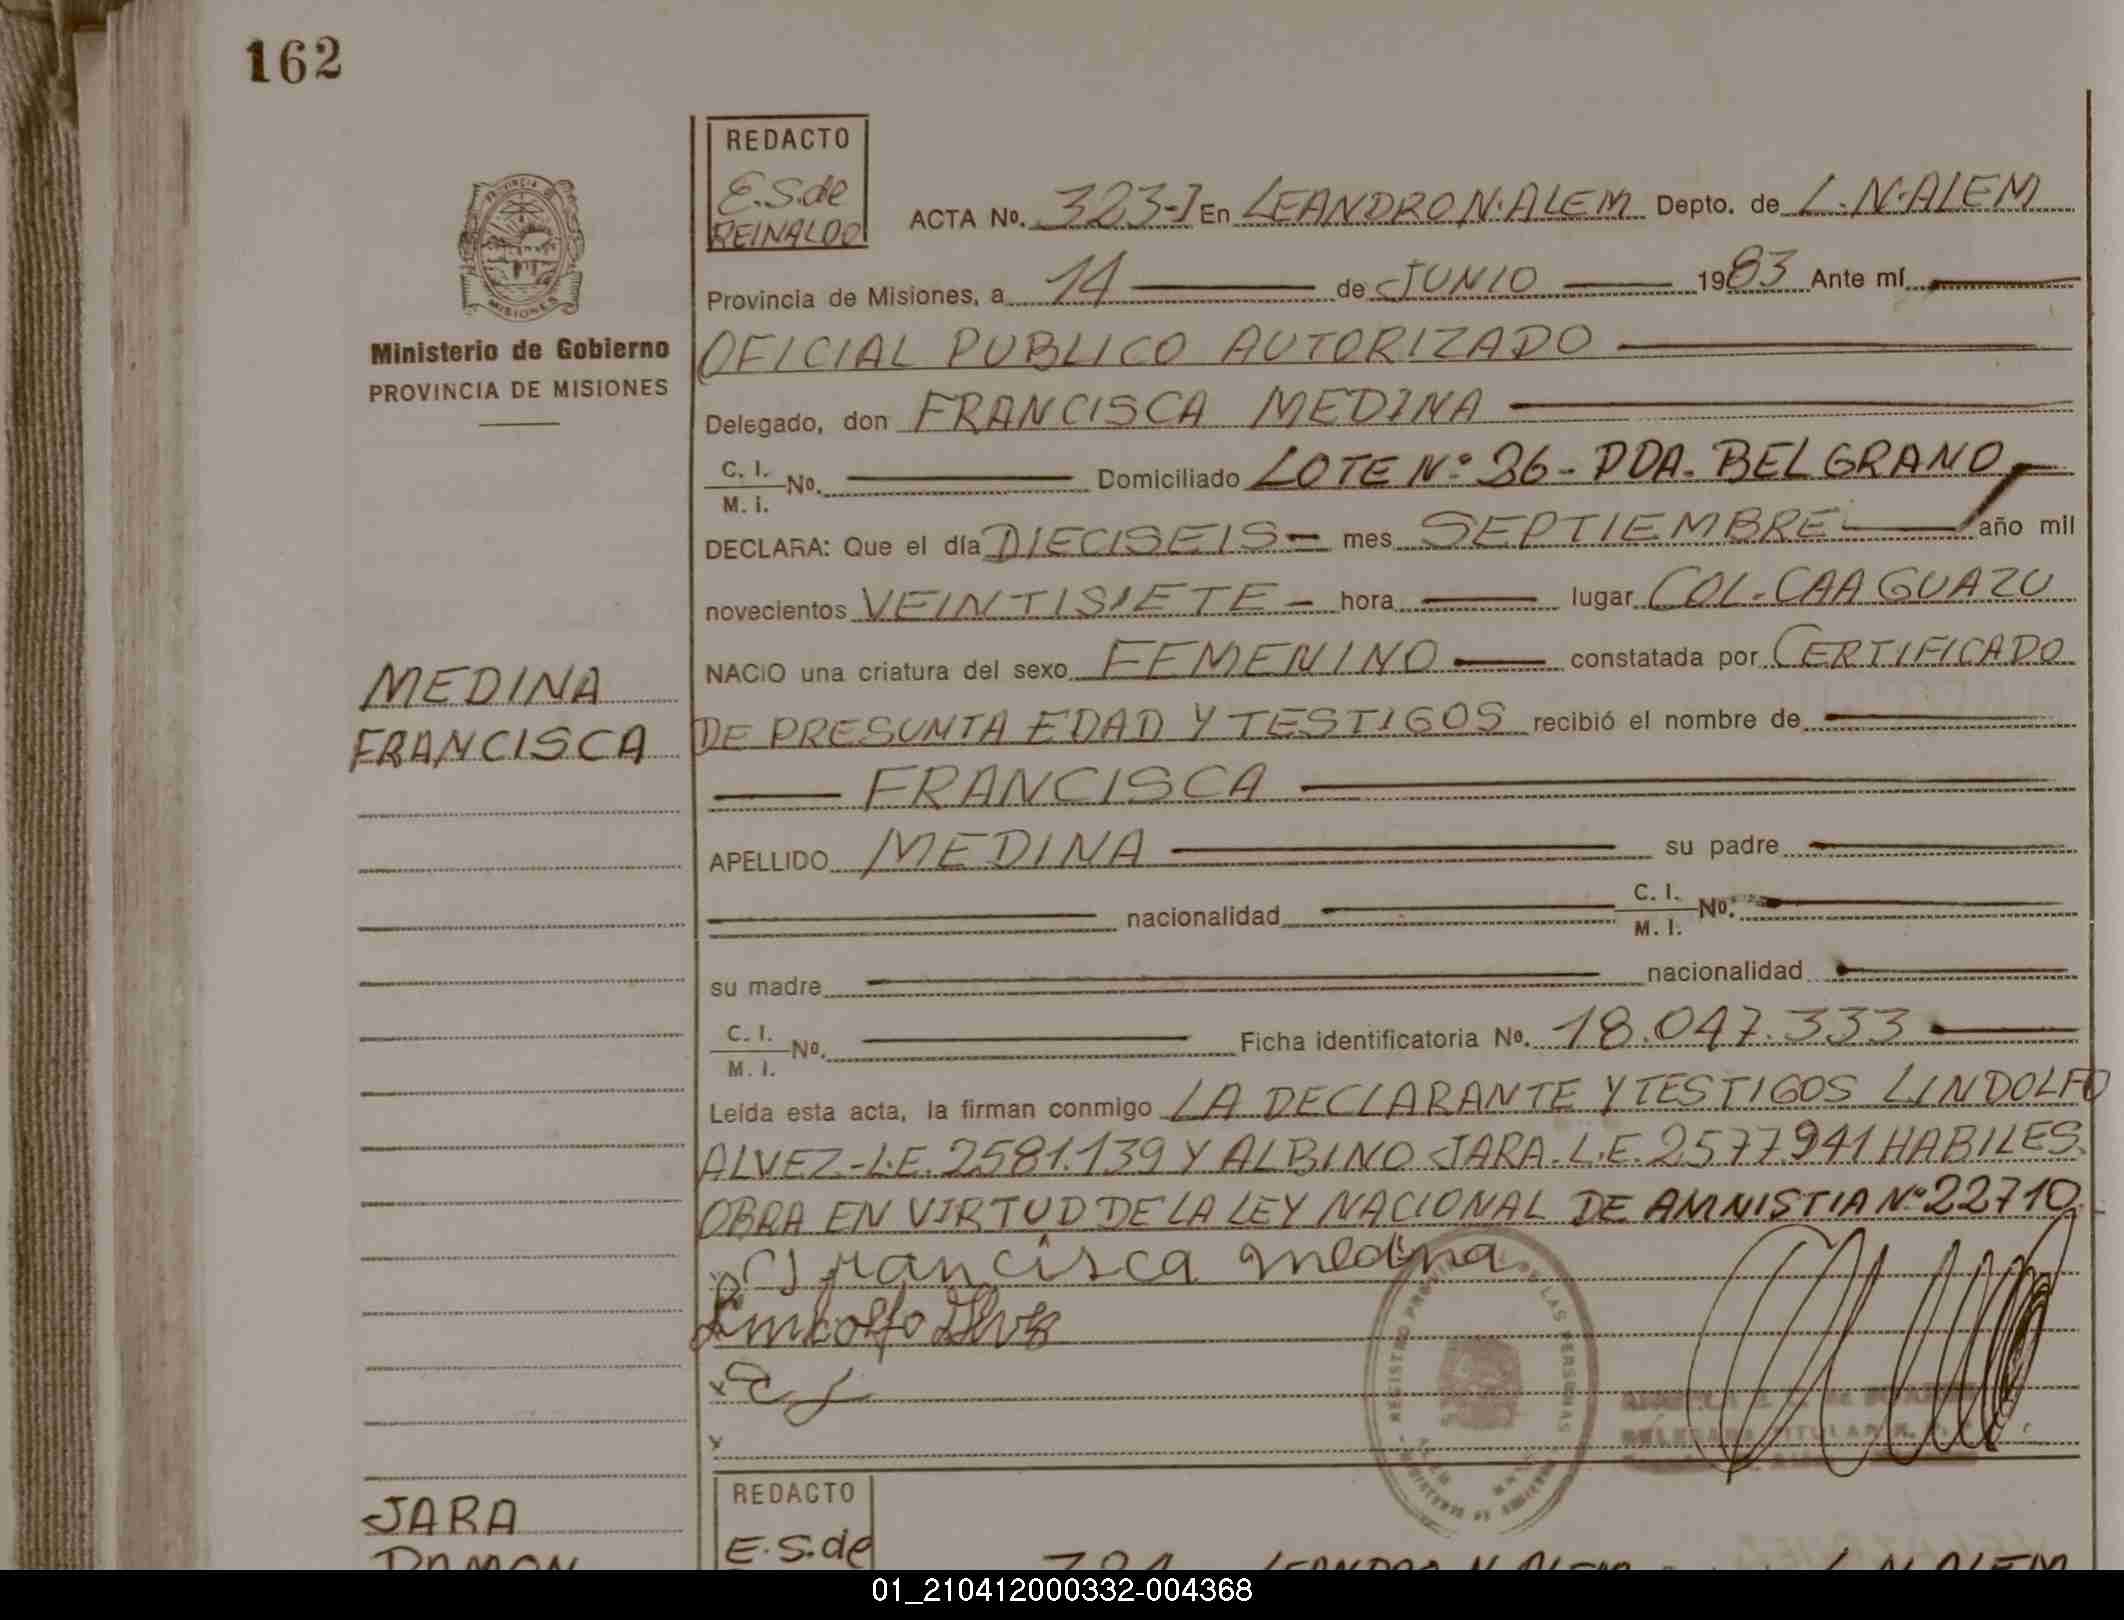 162
REDACTO
E.S.de
REINALDO
ACTA No. 323-I En LEANDRO N. ALEM Depto. de L. N. ALEM
Provincia de Misiones, a 14 de JUNIO 1983 Ante mí
OFICIAL PUBLICO AUTORIZADO
PROVINCIA
MISIONES
Ministerio de Gobierno
PROVINCIA DE MISIONES
Delegado, don FRANCISCA MEDINA
C. I.
M. i. No. Domiciliado LOTE Nº 36 - PDA. BELGRANO
DECLARA: Que el día DIECISEIS mes SEPTIEMBRE año mil
novecientos VEINTISIETE hora lugar COL. CAAGUAZU
NACIO una criatura del sexo FEMENINO constatada por CERTIFICADO
DE PRESUNTA EDAD Y TESTIGOS recibió el nombre de
FRANCISCA
MEDINA
FRANCISCA
APELLIDO MEDINA su padre
nacionalidad C. I.
M. I. No.
su madre nacionalidad
C. I.
M. I. No. Ficha identificatoria No. 18.047.333
Leída esta acta, la firman conmigo LA DECLARANTE Y TESTIGOS LINDOLFO
ALVEZ - L.E. 2581.139 Y ALBINO JARA. L.E. 2577.941 HABILES.
OBRA EN VIRTUD DE LA LEY NACIONAL DE AMNISTIA Nº 22710
Francisca medina
Lindolfo Alvez
REGISTRO DE LAS PERSONAS
JARA
RAMON
REDACTO
E.S.de
324 LEANDRO N. ALEM L. N. ALEM
01_210412000332-004368